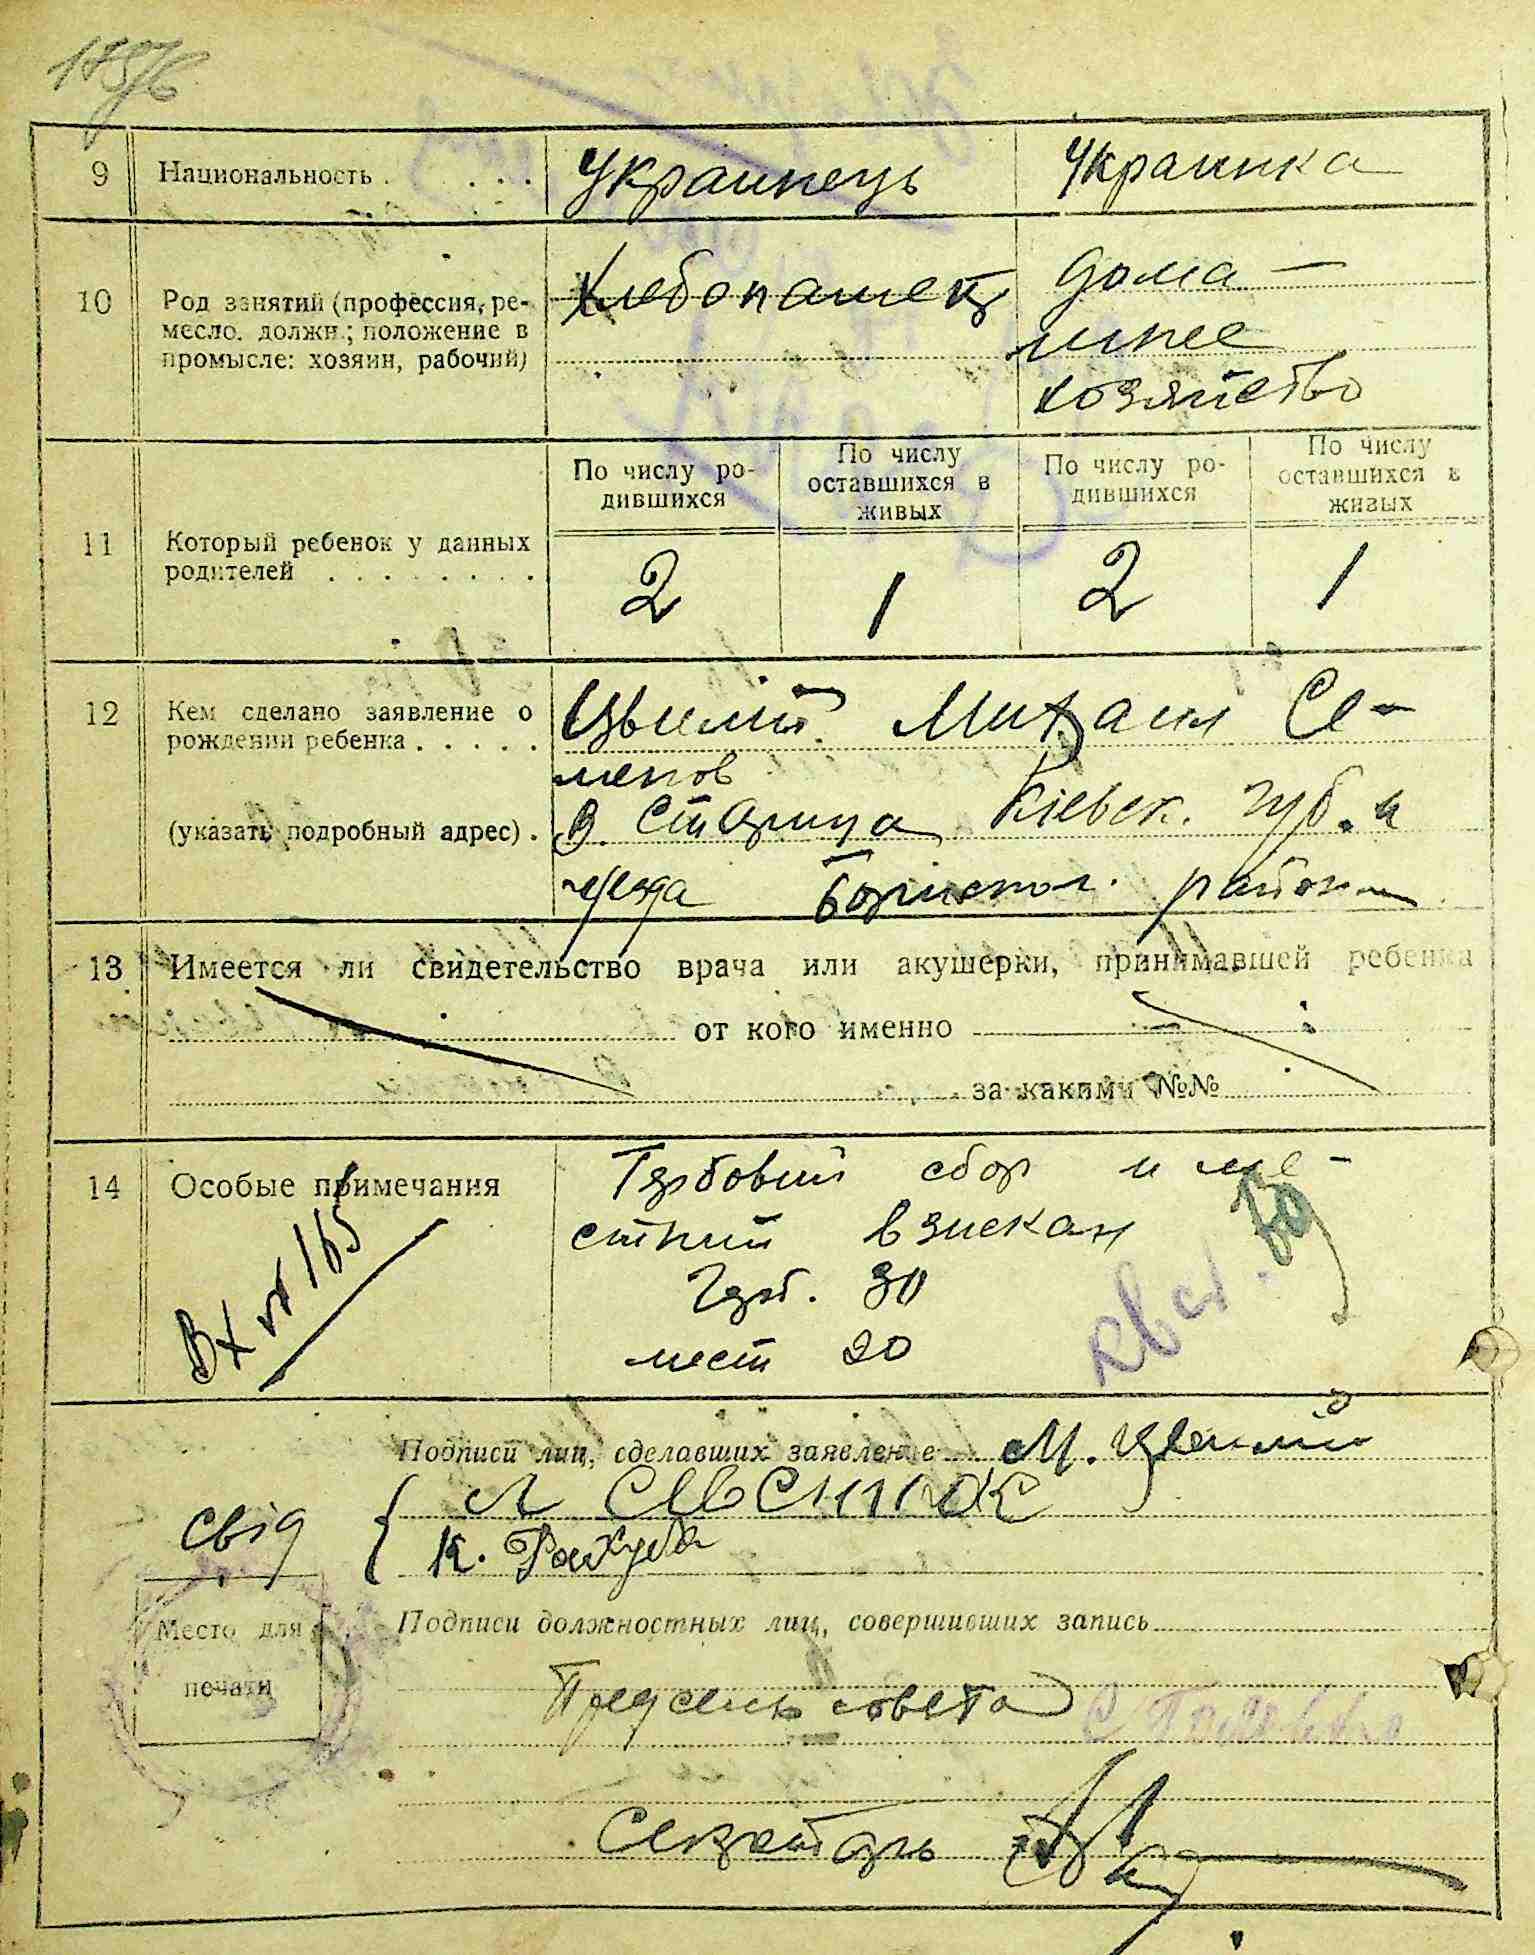 9 Национальность Украинець Украинка
10 Род занятий (профессия, ре-
месло, должн.; положение в
промысле: хозяин, рабочий)
Хлебопашец
дома-
шнее
хозяйство
11 Который ребенок у данных
родителей
По числу ро-
дившихся
По числу
оставшихся в
живых
По числу ро-
дившихся
По числу
оставшихся в
живых
2 1 2 1
12 Кем сделано заявление о
рождении ребенка
(указать подробный адрес).
Михаил Се-
менов
в. Старица Кіевск. губ. и
уезда Бориспол. района
13 Имеется ли свидетельство врача или акушерки, принимавшей ребенка
от кого именно
за какими №№
14 Особые примечания
Вх № 165
Гербовий сбор и ме-
стний взискан
Герб. 30
мест 20
М.
свід
К. Рахуба
Подписи лиц, сделавших заявление
Место для
печати
Подписи должностных лиц, совершивших запись
Пред сельсовета
Секретарь